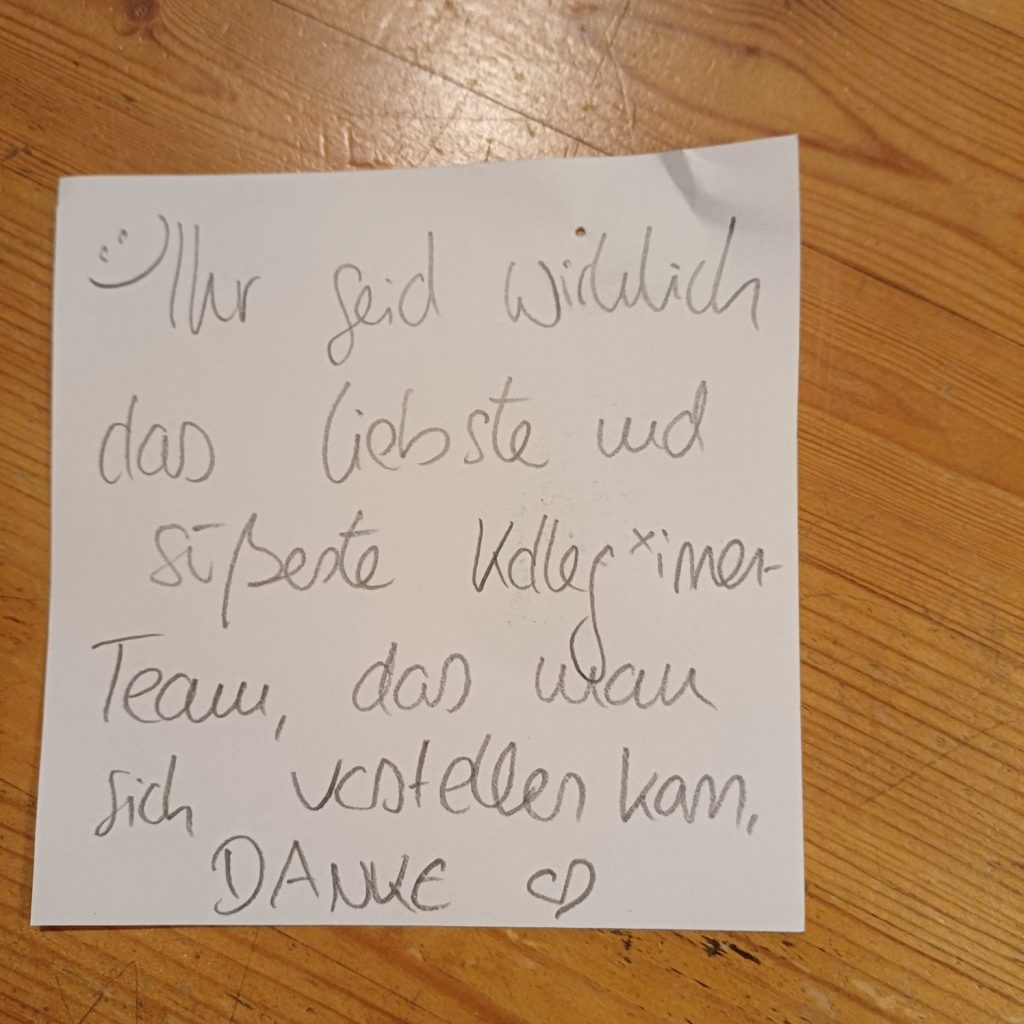 :) Ihr seid wirklich
das liebste und
süßeste Kolleg*innen-
Team, das man
sich vorstellen kann.
DANKE ♡